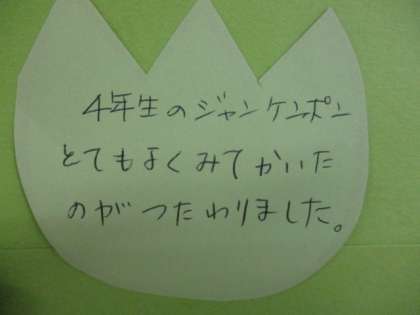 4年生のジャンケンポン
とてもよくみてかいた
のがつたわりました。